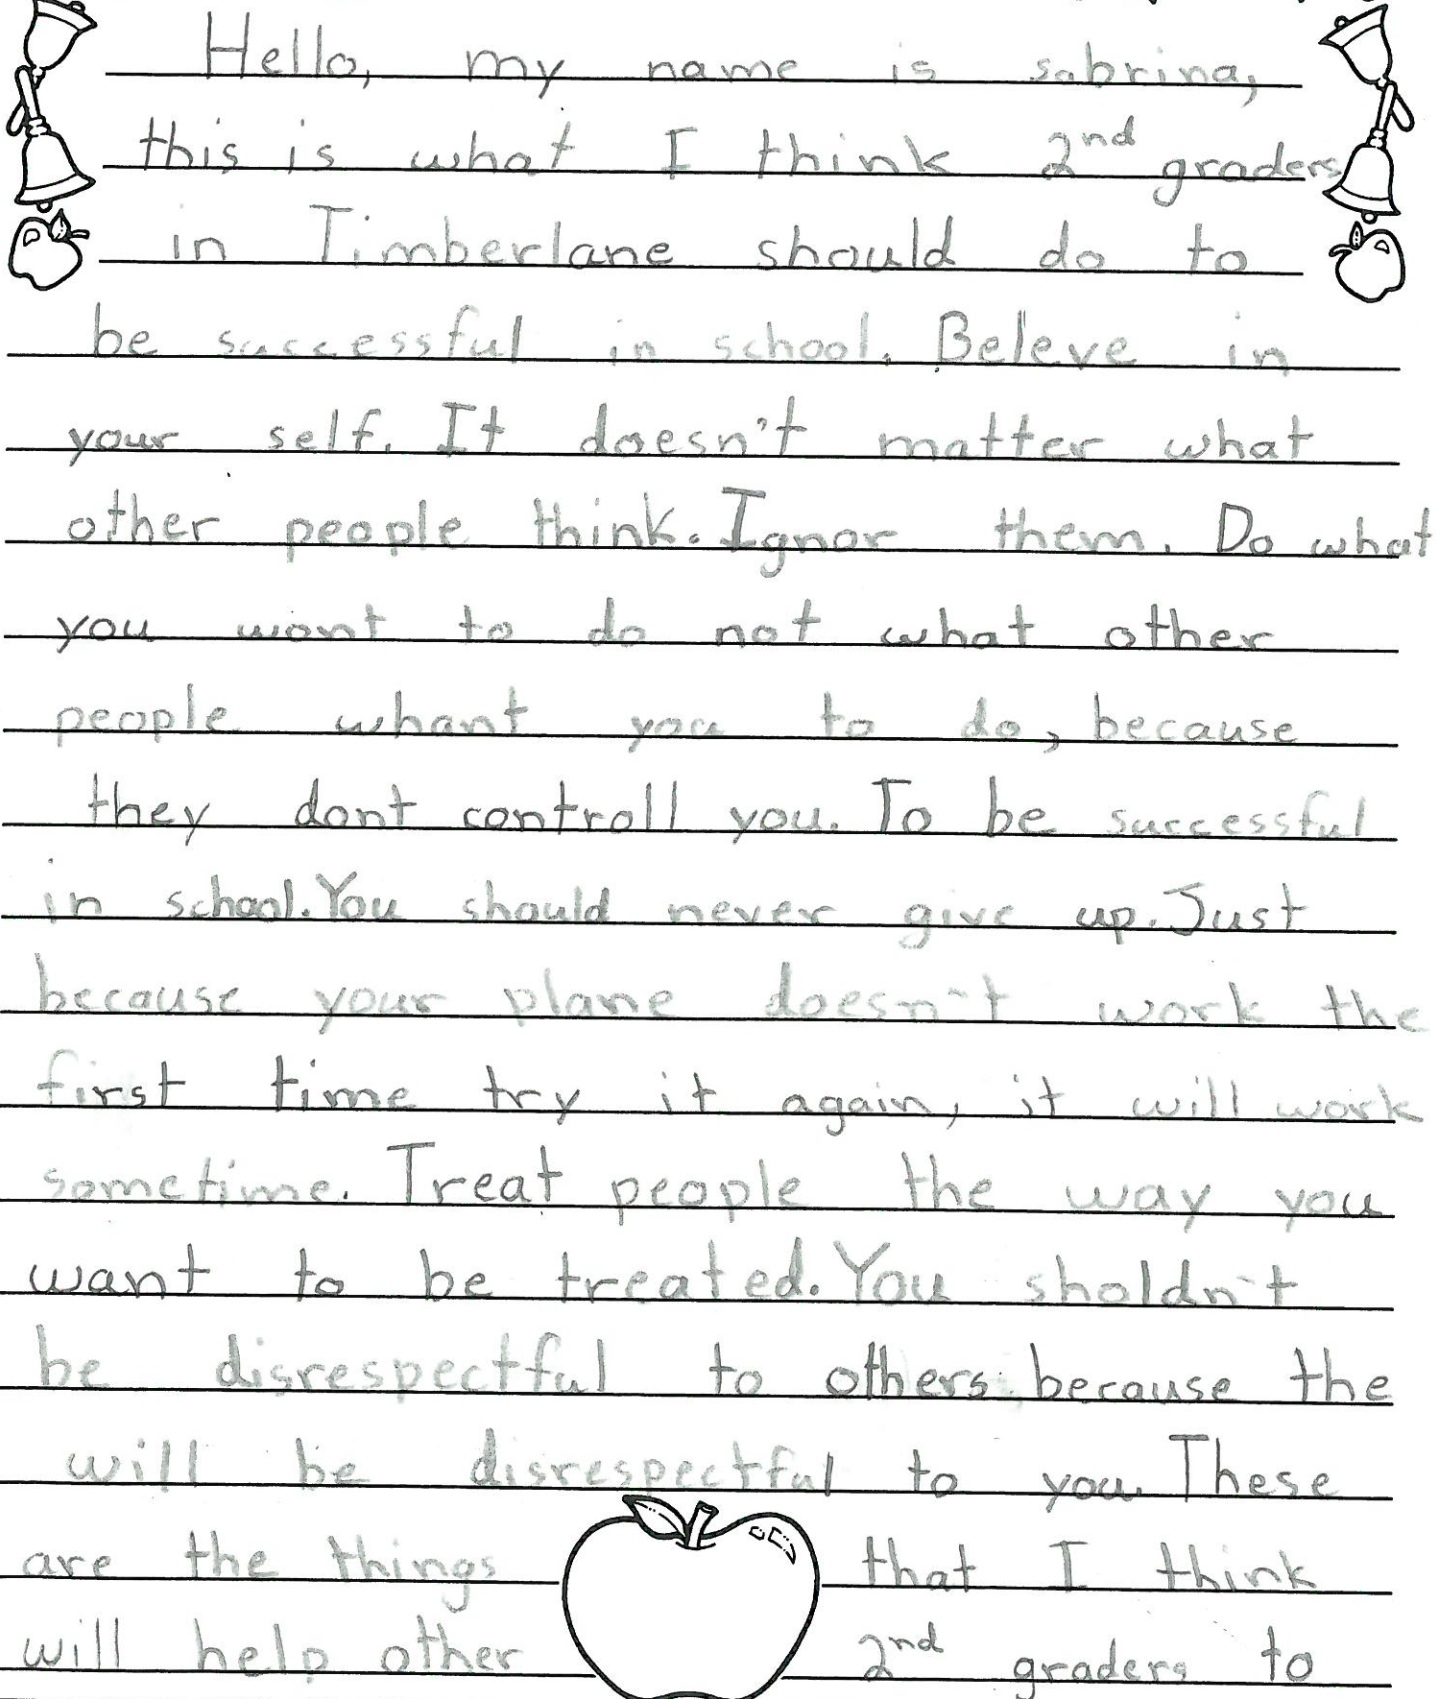 Hello, my name is sabrina,
this is what I think 2nd graders
in Timberlane should do to
be successful in school. Beleve in
your self. It doesn't matter what
other people think. Ignor them. Do what
you wont to do not what other
people whant you to do, because
they dont controll you. To be successful
in school. You should never give up. Just
because your plane doesn't work the
first time try it again, it will work
sometime. Treat people the way you
want to be treated. You sholdn't
be disrespectful to others because the
will be disrespectful to you. These
are the things that I think
will help other 2nd graders to